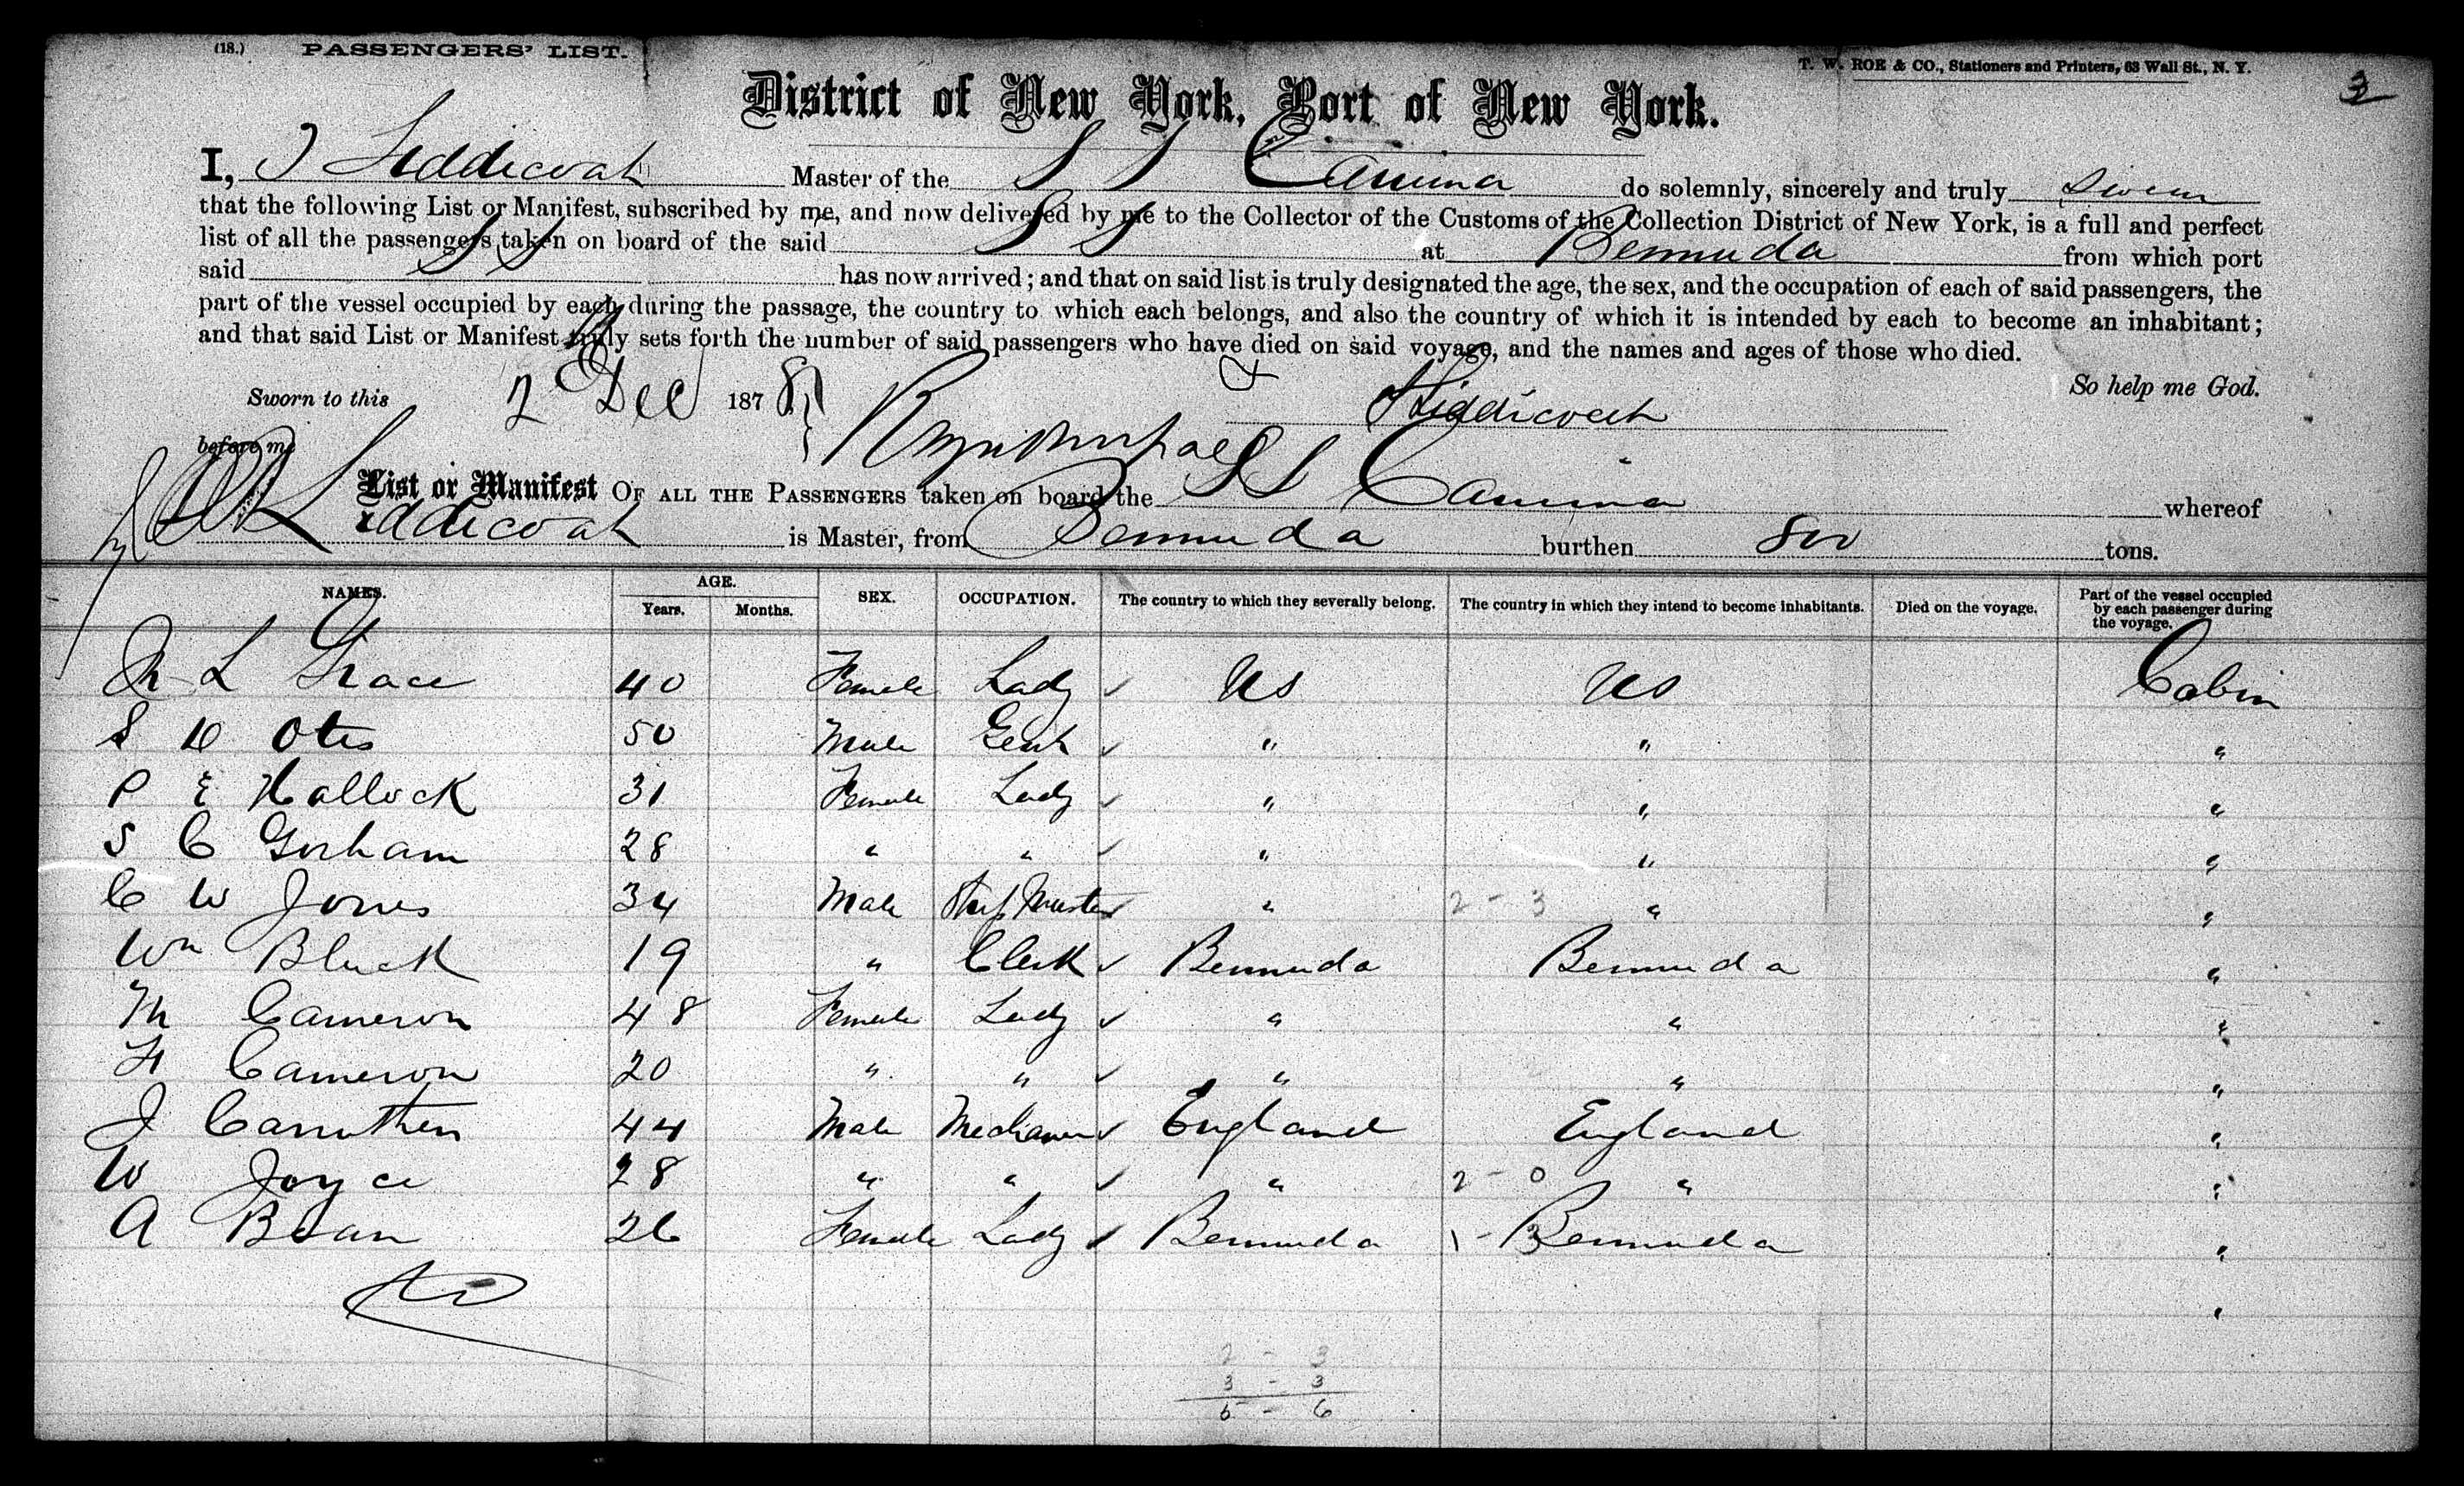 (18.) PASSENGERS' LIST.
T. W. ROE & CO., Stationers and Printers, 63 Wall St., N. Y.
3
District of New York, Port of New York.
I, J Liddicoat Master of the S S Canima do solemnly, sincerely and truly swear
that the following List or Manifest, subscribed by me, and now delivered by me to the Collector of the Customs of the Collection District of New York, is a full and perfect
list of all the passengers taken on board of the said S S at Bermuda from which port
said S S has now arrived; and that on said list is truly designated the age, the sex, and the occupation of each of said passengers, the
part of the vessel occupied by each during the passage, the country to which each belongs, and also the country of which it is intended by each to become an inhabitant;
and that said List or Manifest truly sets forth the number of said passengers who have died on said voyage, and the names and ages of those who died.
So help me God.
Sworn to this 2 Dec 1878
Liddicoat
before me
List or Manifest OF ALL THE PASSENGERS taken on board the S S Canima whereof
Liddicoat is Master, from Bermuda burthen tons.
NAMES. AGE. Years. Months. SEX. OCCUPATION. The country to which they severally belong. The country in which they intend to become inhabitants. Died on the voyage. Part of the vessel occupied by each passenger during the voyage.
L Grace 40 Female Lady ✓ US US Cabin
S Otis 50 Male Gent ✓ " " "
P E Hallock 31 Female Lady ✓ " " "
S C Gorham 28 " " ✓ " " "
C W Jones 34 Male Ship Master ✓ " 2 - 3 " "
Wm Bluck 19 " Clerk ✓ Bermuda Bermuda "
M Cameron 48 Female Lady ✓ " " "
H Cameron 20 " " ✓ " " "
J Carruthers 44 Male Mechanic ✓ England England "
W Joyce 28 " " ✓ " 2 - 0 " "
A Bean 26 Female Lady ✓ Bermuda 1 - 3 Bermuda "
"
2 - 3
3 - 3
5 - 6